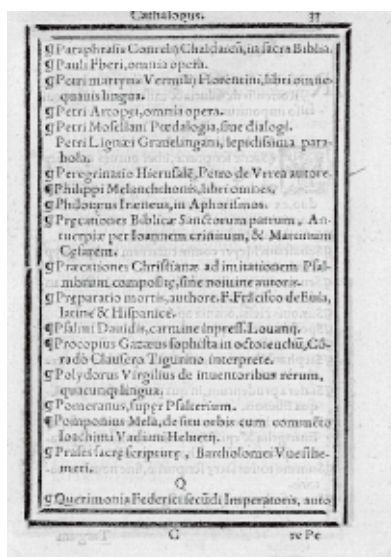 Cathalogus. 33
¶ Paraphrasis Conrelij Chaldaicū, in sacra Biblia.
¶ Pauli Eberi, omnia opera.
¶ Petri martyris Vermilij Florentini, libri omne
quauis lingua.
¶ Petri Artopęi, omnia opera.
¶ Petri Mosellani Pædalogia, siue dialogi.
Petri Lignæi Grauelingani, lepidissima para
bola.
¶ Peregrinatio Hierusalē, Petro de Vrrea autore
¶ Philippi Melanchthonis, libri omnes.
¶ Philonius Irenæus, in Aphorismos.
¶ Pręcationes Biblicæ Sanctorum patrum, An-
tuerpiæ per Ioannem crinitum, & Martinum
Cęsarem.
¶ Præcationes Christianæ ad imitationem Psal-
morum compositę, sine nomine autoris.
¶ Pręparatio mortis, authore. F. Frācisco de Euia,
latine & Hispanice.
¶ Psalmi Dauidis, carmine inpress. Louanij.
¶ Procopius Gazæus sophista in octoteuchū, Cō-
rado Clausero Tigurino interprete.
¶ Polydorus Virgilius de inuentoribus rerum,
quacunq; lingua.
¶ Pomeranus, super Psalterium.
¶ Pomponius Mela, de situ orbis cum commēto
Ioachimi Vadiani Heluetij.
¶ Prases sacrę scripturę, Bartholomei Vuesthe-
meri.
Q
¶ Querimonia Federici secūdi Imperatoris, auto
C re Pe